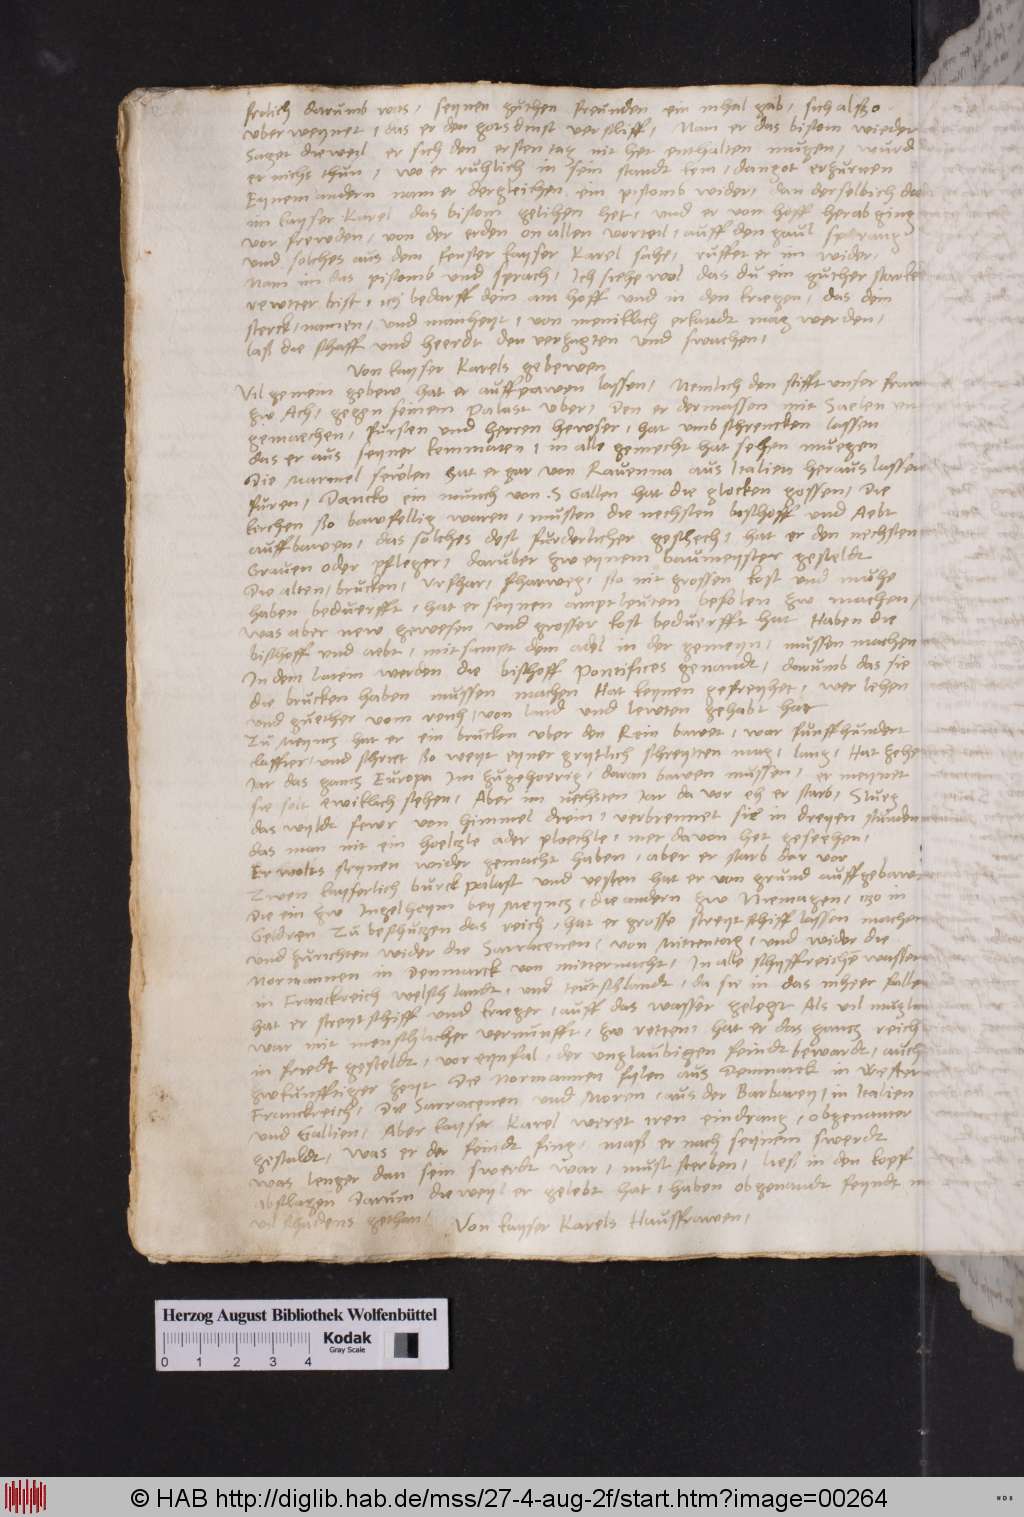 frolich darumb was, seynen guthen freunden ein mhal gab, sich alßo
uberweynet, das er den gotsdinst verschliff, Nam er das bistom wieder
Saget dieweil er sich den ersten tag nit het enthalten mugen, wurd
er nichs thun, wo er ruhlich in sein standt kem,
Eynem andern nam er dergleichen ein pistomb wider, dan derselbich do
im kayser Karel das bistom gelihen het, und er von hoff herab ging
vor frewden, von der erden on allen vorteil, auff den gaul sprang
und solches aus dem fenster kayser Karel sahe, ruffet er im wider,
Nam im das pistomb und sprach, Ich siehe wol das du ein guther starker
rewtter bist, ich bedarff dein am hoff und in den kriegen, das dein
sterck, namen, und manheyt, von meniklich erkandt mag werden,
laß die schaff und heerdt den verzagten und swachen,
Von kayser Karels gebewen
Vil gemein gebew hat er auffpawen lassen, Nemlich den stifft unser frawen
zw Ach, gegen seinem palast uber, Den er dermassen mit Saelen
gemacchen, fursten und herren hewser, hat umbschrencken lassen
das er aus seyner kemmaten, in alle gemecht hat sehen muegen
Die Marmel seulen hat er gar von Ravenna aus Italien heraus lassen
furen, Dancko ein munch von S Gallen hat die glocken gossen, Die
kirchen ßo bawfellig waren, musten die nechsten bischoff und Aebt
auffbawen, das solches dest furderlicher geschech, hat er den nechsten
Grauen oder pfleger, daruber zw eynem baumeyster gesteldt
Die alten, brucken, Urfhar, fharweg, ßo nit grossen kost und muhe
haben beduerfft, hat er seynen amptleuten befolen zw machen,
was aber new gewesen und grosser kost beduerfft hat Haben die
bischoff und aebt, mitsampt dem adel in der gemeyn, mussen machen
In dem latein werden die bischoff Pontifices genandt, darumb das sie
die brucken haben mussen machen Hat keynen gefreyhet, wer lehen
und guether vom reich, von land und lewten gehabt hat
Zu Meyncz hat er ein brucken uber den Rein bawet, war funffhundert
claffter, und schriet ßo weyt eyner grytlich schreytten mag, lang, Hat zehen
Jar das gancz Europa Im zugehorrig, daran bawen mussen, er meynet
sie solt ewiklich stehen, Aber im nechsten Jar da vor eh er starb, Slueg
das wyldt fewr von himmel drein, verbrennet sie in dreyen stunden
das man nit ein hoelczle ader ploechle, mer davon het gesechen,
Er wolts steynen wider gemacht haben, aber er starb dar vor
Zwen kayserlich burck palast und vesten hat er von grund auffgebawt
Die ein zw Ingelheym bey Meyncz, die andern zw Niemagen, iczo in
Geldren Zu beschuczen das reich, hat er grosse streytschiff lassen machen
und zurichten wider die Sarracenen, von Mittemtag, und wider die
Normannen in Denmarck von mitternacht, In alle schyffreiche wasser
in Franckreich welschlandt, und teutschlandt, da sie in das mheer fallen
hat er streytschiff und krieger, auff das wasser gelegt Als vil muglich
war mit menschlicher vernunfft, zw retten, hat er das gancz reich
in friedt gesteldt, vor eynfal, der unglaubigen feindt bewardt, auch
zwkunfftiger zeyt Die Normannen fylen aus Denmarck in Wester
Franckreich, Die Sarracenen und Moren, aus der Barbarey, in Italien
und Gallien, Aber kayser Karel weret iren eindrang, obgenanter
gestaldt, Was er der feindt fing, maß er nach seynem swerdt
was lenger dan sein swerdt war, must sterben, ließ in den kopf
abschlagen Darum dieweyl er gelebt hat, haben obgenandt feyndt
vil schadens gethan,
Von kayser Karels Haussfrawen,
Herzog August Bibliothek Wolfenbüttel
Kodak
Gray Scale
0 1 2 3 4
© HAB http://diglib.hab.de/mss/27-4-aug-2f/start.htm?image=00264